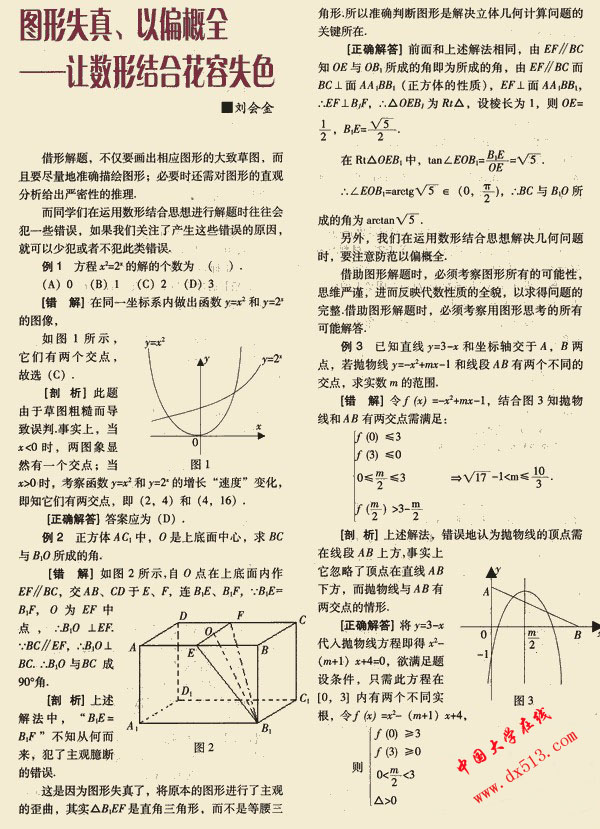 图形失真、以偏概全
——让数形结合花容失色
■刘会金
借形解题，不仅要画出相应图形的大致草图，而
且要尽量地准确描绘图形；必要时还需对图形的直观
分析给出严密性的推理.
而同学们在运用数形结合思想进行解题时往往会
犯一些错误，如果我们关注了产生这些错误的原因，
就可以少犯或者不犯此类错误.
例1 方程x²=2ˣ的解的个数为 （ ）.
（A）0 （B）1 （C）2 （D）3
[错 解] 在同一坐标系内做出函数y=x²和y=2ˣ
的图像，
如图1所示，
它们有两个交点，
故选（C）.
[剖 析] 此题
由于草图粗糙而导
致误判.事实上，当
x<0时，两图象显
然有一个交点；当
y=x²
y
y=2ˣ
x
0
图1
x>0时，考察函数y=x²和y=2ˣ的增长“速度”变化，
即知它们有两交点，即（2，4）和（4，16）.
[正确解答] 答案应为（D）.
例2 正方体AC₁中，O是上底面中心，求BC
与B₁O所成的角.
[错 解] 如图2所示,自O点在上底面内作
EF∥BC，交AB、CD于E、F，连B₁E、B₁F，∵B₁E=
B₁F，O为EF中
点，∴B₁O⊥EF.
∵BC∥EF，∴B₁O⊥
BC. ∴B₁O与BC成
90°角.
[剖 析] 上述
解法中，“B₁E=
B₁F”不知从何而
来，犯了主观臆断
的错误.
D F C
O
A E B
D₁ C₁
A₁ B₁
图2
这是因为图形失真了，将原本的图形进行了主观
的歪曲，其实△B₁EF是直角三角形，而不是等腰三
角形.所以准确判断图形是解决立体几何计算问题的
关键所在.
[正确解答] 前面和上述解法相同，由EF∥BC
知OE与OB₁所成的角即为所成的角，由EF∥BC而
BC⊥面AA₁BB₁（正方体的性质），EF⊥面AA₁BB₁，
∴EF⊥B₁F，∴△OEB₁为Rt△，设棱长为1，则OE=
1/2，B₁E=√5/2.
在Rt△OEB₁中，tan∠EOB₁=B₁E/OE=√5.
∴∠EOB₁=arctg√5∈（0，π/2），∴BC与B₁O所
成的角为arctan√5.
另外，我们在运用数形结合思想解决几何问题
时，要注意防范以偏概全.
借助图形解题时，必须考察图形所有的可能性，
思维严谨，进而反映代数性质的全貌，以求得问题的
完整.借助图形解题时，必须考察用图形思考的所有
可能解答.
例3 已知直线y=3-x和坐标轴交于A，B两
点，若抛物线y=-x²+mx-1和线段AB有两个不同的
交点，求实数m的范围.
[错 解] 令f(x)=-x²+mx-1，结合图3知抛物
线和AB有两交点需满足：
f(0)≤3
f(3)≤0
0≤m/2≤3 ⇒√17-1<m≤10/3.
f(m/2)>3-m/2
[剖 析] 上述解法，错误地认为抛物线的顶点需
在线段AB上方,事实上
它忽略了顶点在直线AB
下方，而抛物线与AB有
两交点的情形.
[正确解答] 将y=3-x
代入抛物线方程即得x²-
（m+1）x+4=0，欲满足题
设条件，只需此方程在
[0，3]内有两个不同实
根，令f(x)=x²-（m+1）x+4，
y
A
0 m/2 B x
-1
图3
则
f(0)≥3
f(3)≥0
0<m/2<3
△>0
中国大学在线
www.dx513.com